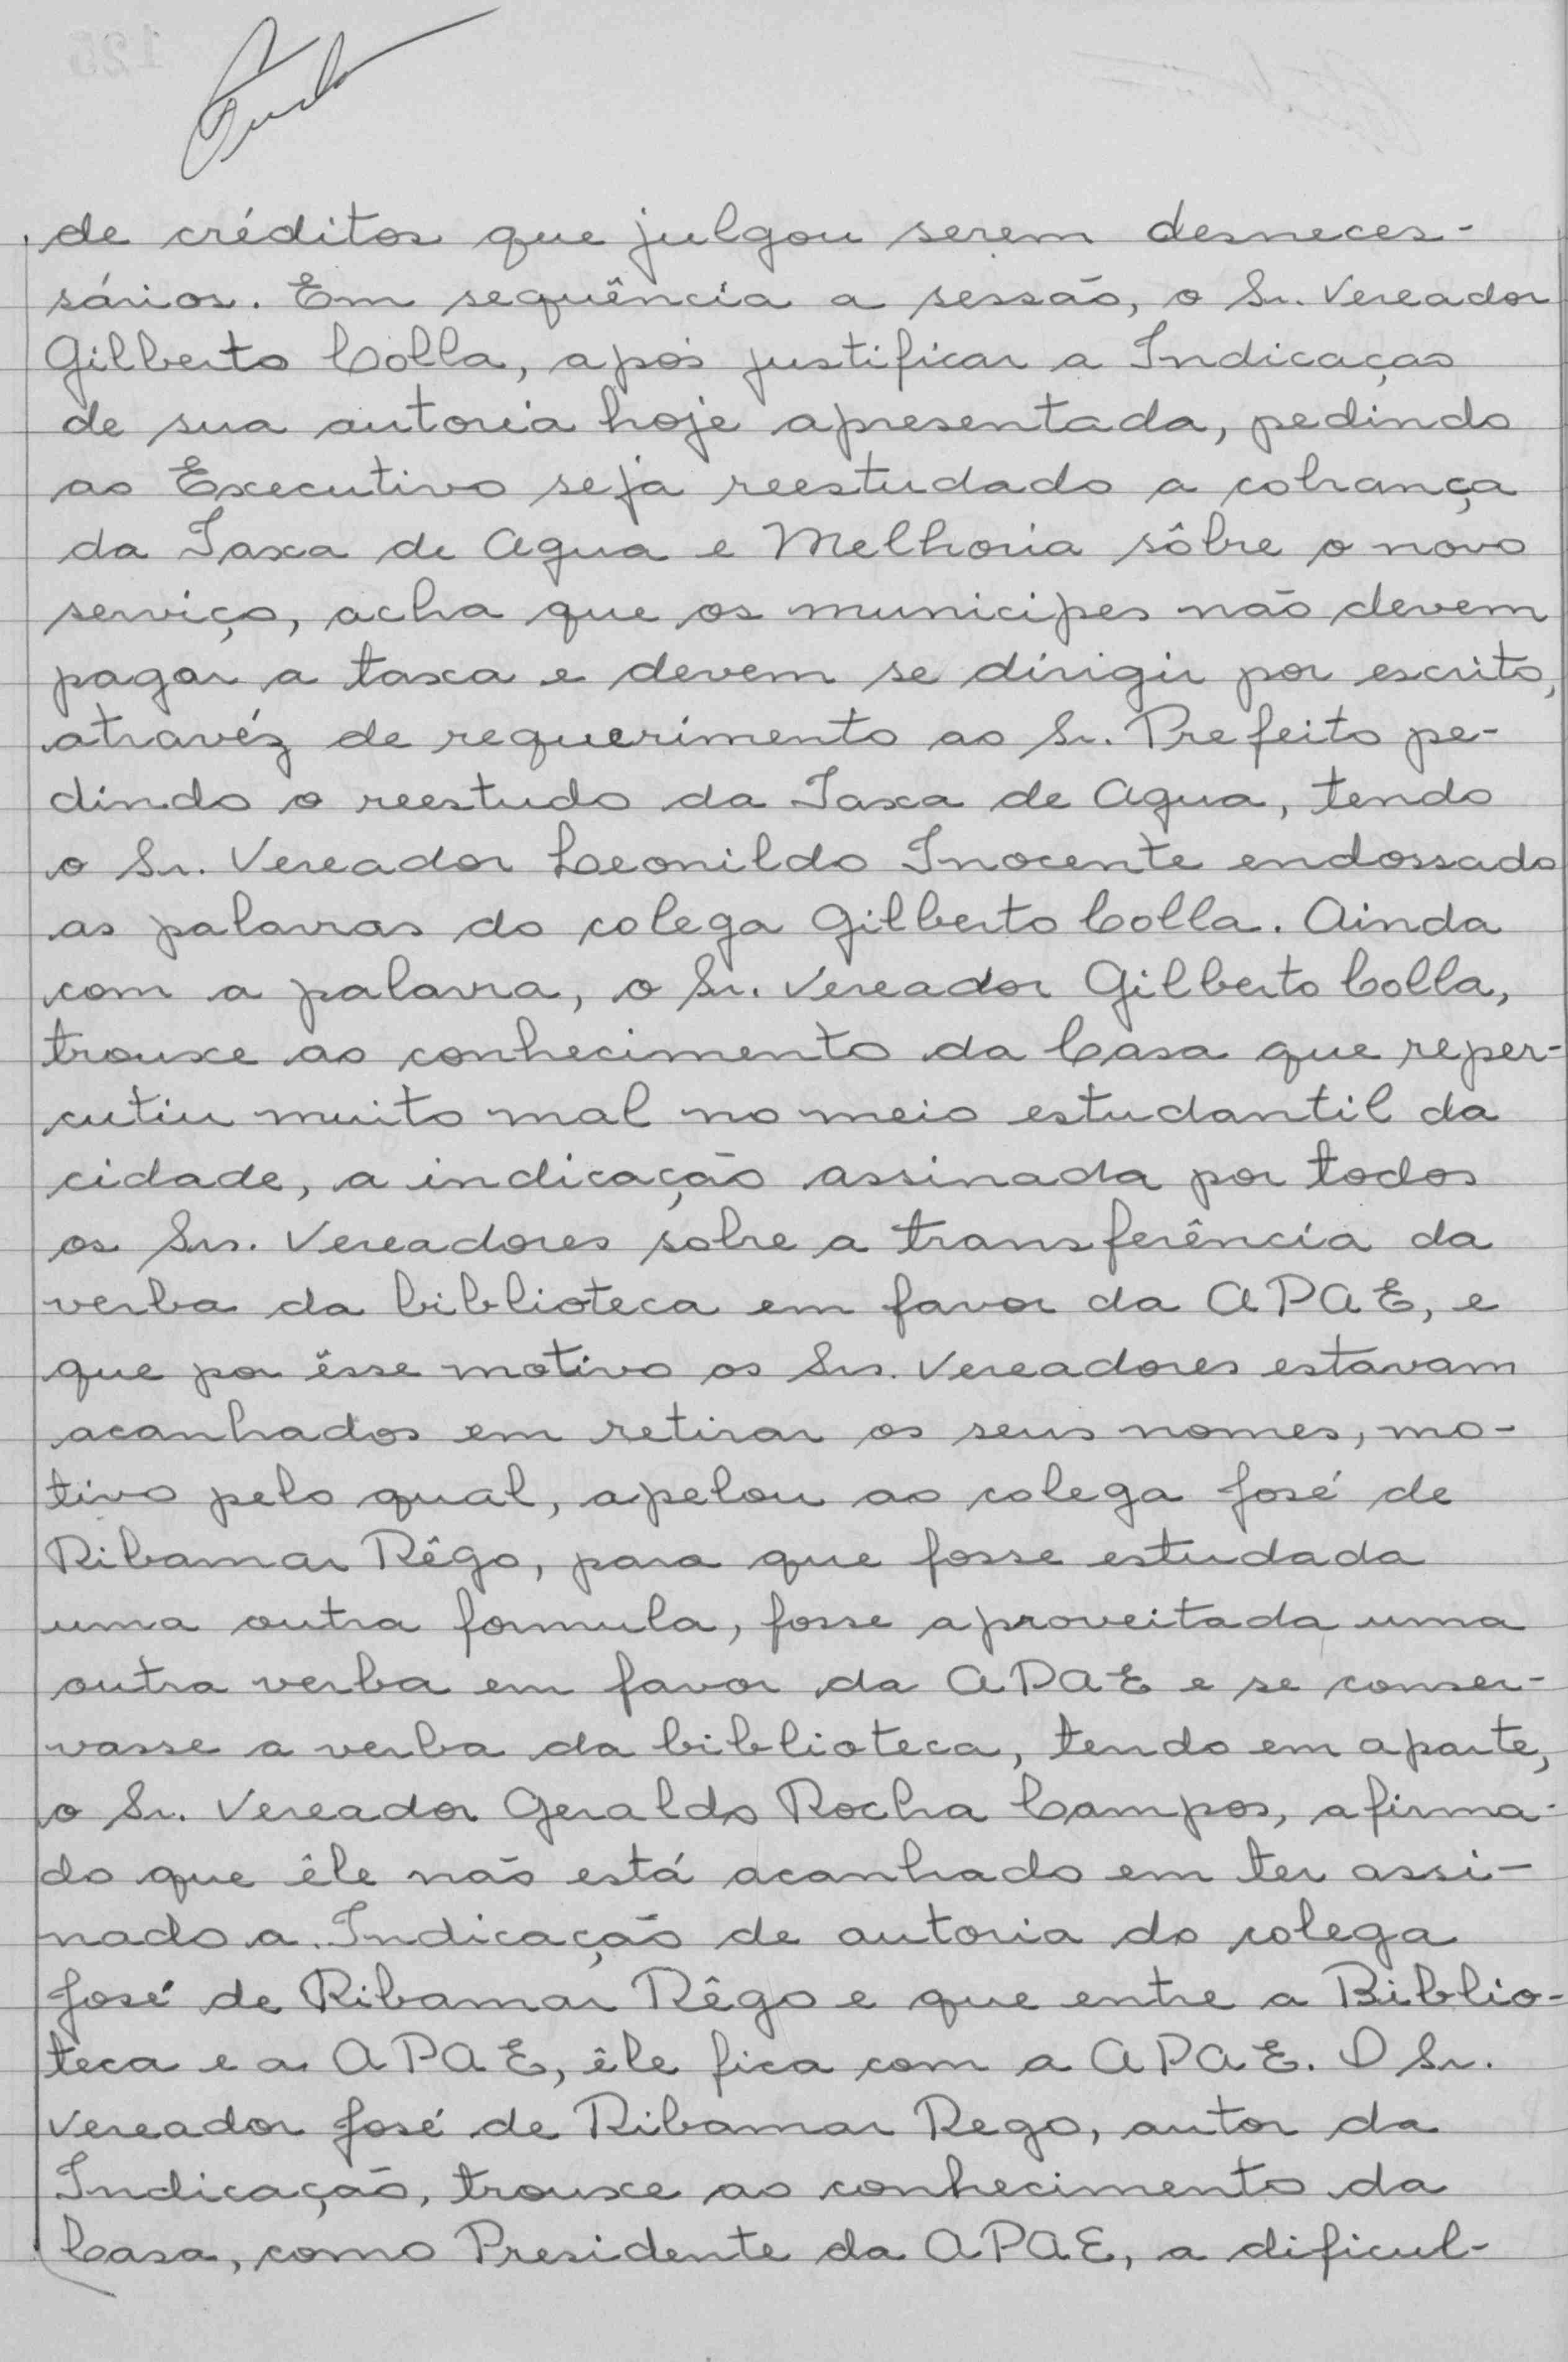 de créditos que julgou serem desneces-
sários. Em sequência a sessão, o Sr. Vereador
Gilberto Colla, após justificar a Indicaçao
de sua autoria hoje apresentada, pedindo
ao Executivo seja reestudado a cobrança
da Taxa de Agua e Melhoria sôbre o novo
serviço, acha que os municipes não devem
pagar a taxa e devem se dirigir por escrito,
atravéz de requerimento ao Sr. Prefeito pe-
dindo o reestudo da Taxa de Agua, tendo
o Sr. Vereador Leonildo Inocente endossado
as palavras do colega Gilberto Colla. Ainda
com a palavra, o Sr. Vereador Gilberto Colla,
trouxe ao conhecimento da Casa que reper-
cutiu muito mal no meio estudantil da
cidade, a indicação assinada por todos
os Srs. Vereadores sobre a transferência da
verba da biblioteca em favor da APAE, e
que por êsse motivo os Srs. Vereadores estavam
acanhados em retirar os seus nomes, mo-
tivo pelo qual, apelou ao colega José de
Ribamar Rêgo, para que fosse estudada
uma outra formula, fosse aproveitada uma
outra verba em favor da APAE e se conser-
vasse a verba da biblioteca, tendo em aparte,
o Sr. Vereador Geraldo Rocha Campos, afirma-
do que êle não está acanhado em ter assi-
nado a Indicação de autoria do colega
José de Ribamar Rêgo e que entre a Biblio-
teca e a APAE, êle fica com a APAE. O Sr.
Vereador José de Ribamar Rego, autor da
Indicação, trouxe ao conhecimento da
Casa, como Presidente da APAE, a dificul-